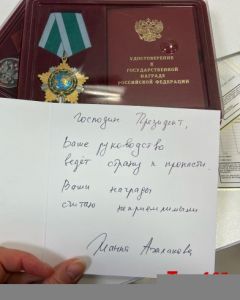 УДОСТОВЕРЕНИЕ
К
ГОСУДАРСТВЕННОЙ
НАГРАДЕ
РОССИЙСКОЙ ФЕДЕРАЦИИ
Господин Президент,
Ваше руководство
ведёт страну к пропасти.
Ваши награды
считаю неприемлимыми